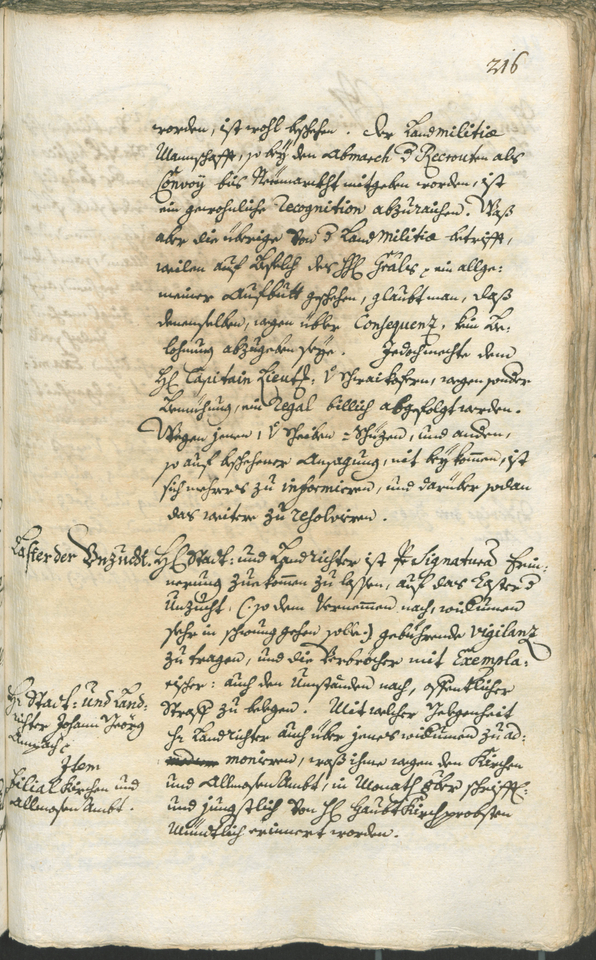 216
worden, ist wohl beschehen. Der Landmilitiæ
Mannschafft, so bey den Abmarch d Recrouten als
Convoy bis Neumarckht mitgeben worden, ist
ein gewohnliche Recognition abzuraichen. Waß
aber die übrige von d Landmilitiæ betrifft,
weilen auf Befelch des ein allge:
meiner Aufbutt geschehen, glaubt man, daß
denenselben, wegen übler Consequenz, kein Be:
lohnung abzugeben seye. Jedoch mechte dem
H: Capitain Lieut: v Schraikofern, wegen sonder
Bemühung, ein Regal billich abgefolgt werden.
Wegen jenen, Scheiben = Schüzen, und anden,
so auf beschehener Ansagung, nit beykommen, ist
sich mehrers zu informieren, und darüber sodan
das weitere zu resolvieren.
Laster der Unzucht.
H: Stadt: und Landrichter ist Signatura Erin:
nerung zuekommen zu lassen, auf das Laster d
Unzucht, (: so dem Vernemmen nach, widerumen
sehr in schwung gehen solle :) gebührende vigilanz
zu tragen, und die Verbrecher mit Exempla:
rischer: auch den Umständen nach, offentlicher
Straff zu belegen. Mit welcher Gelegenheit
H: Landrichter auch über jenes widerumen zu ad:
monieren, waß ihme wegen den Kirchen
und Allmosen Ambt, in Monath 8ber schrifft:
und jüngstlich von H: Haubt Kirchprobsten
Mündtlich erinnert worden.
H: Statt: und Land:
richter Johann Geörg
Item
Filial Kirchen und
Allmosen Ambt.